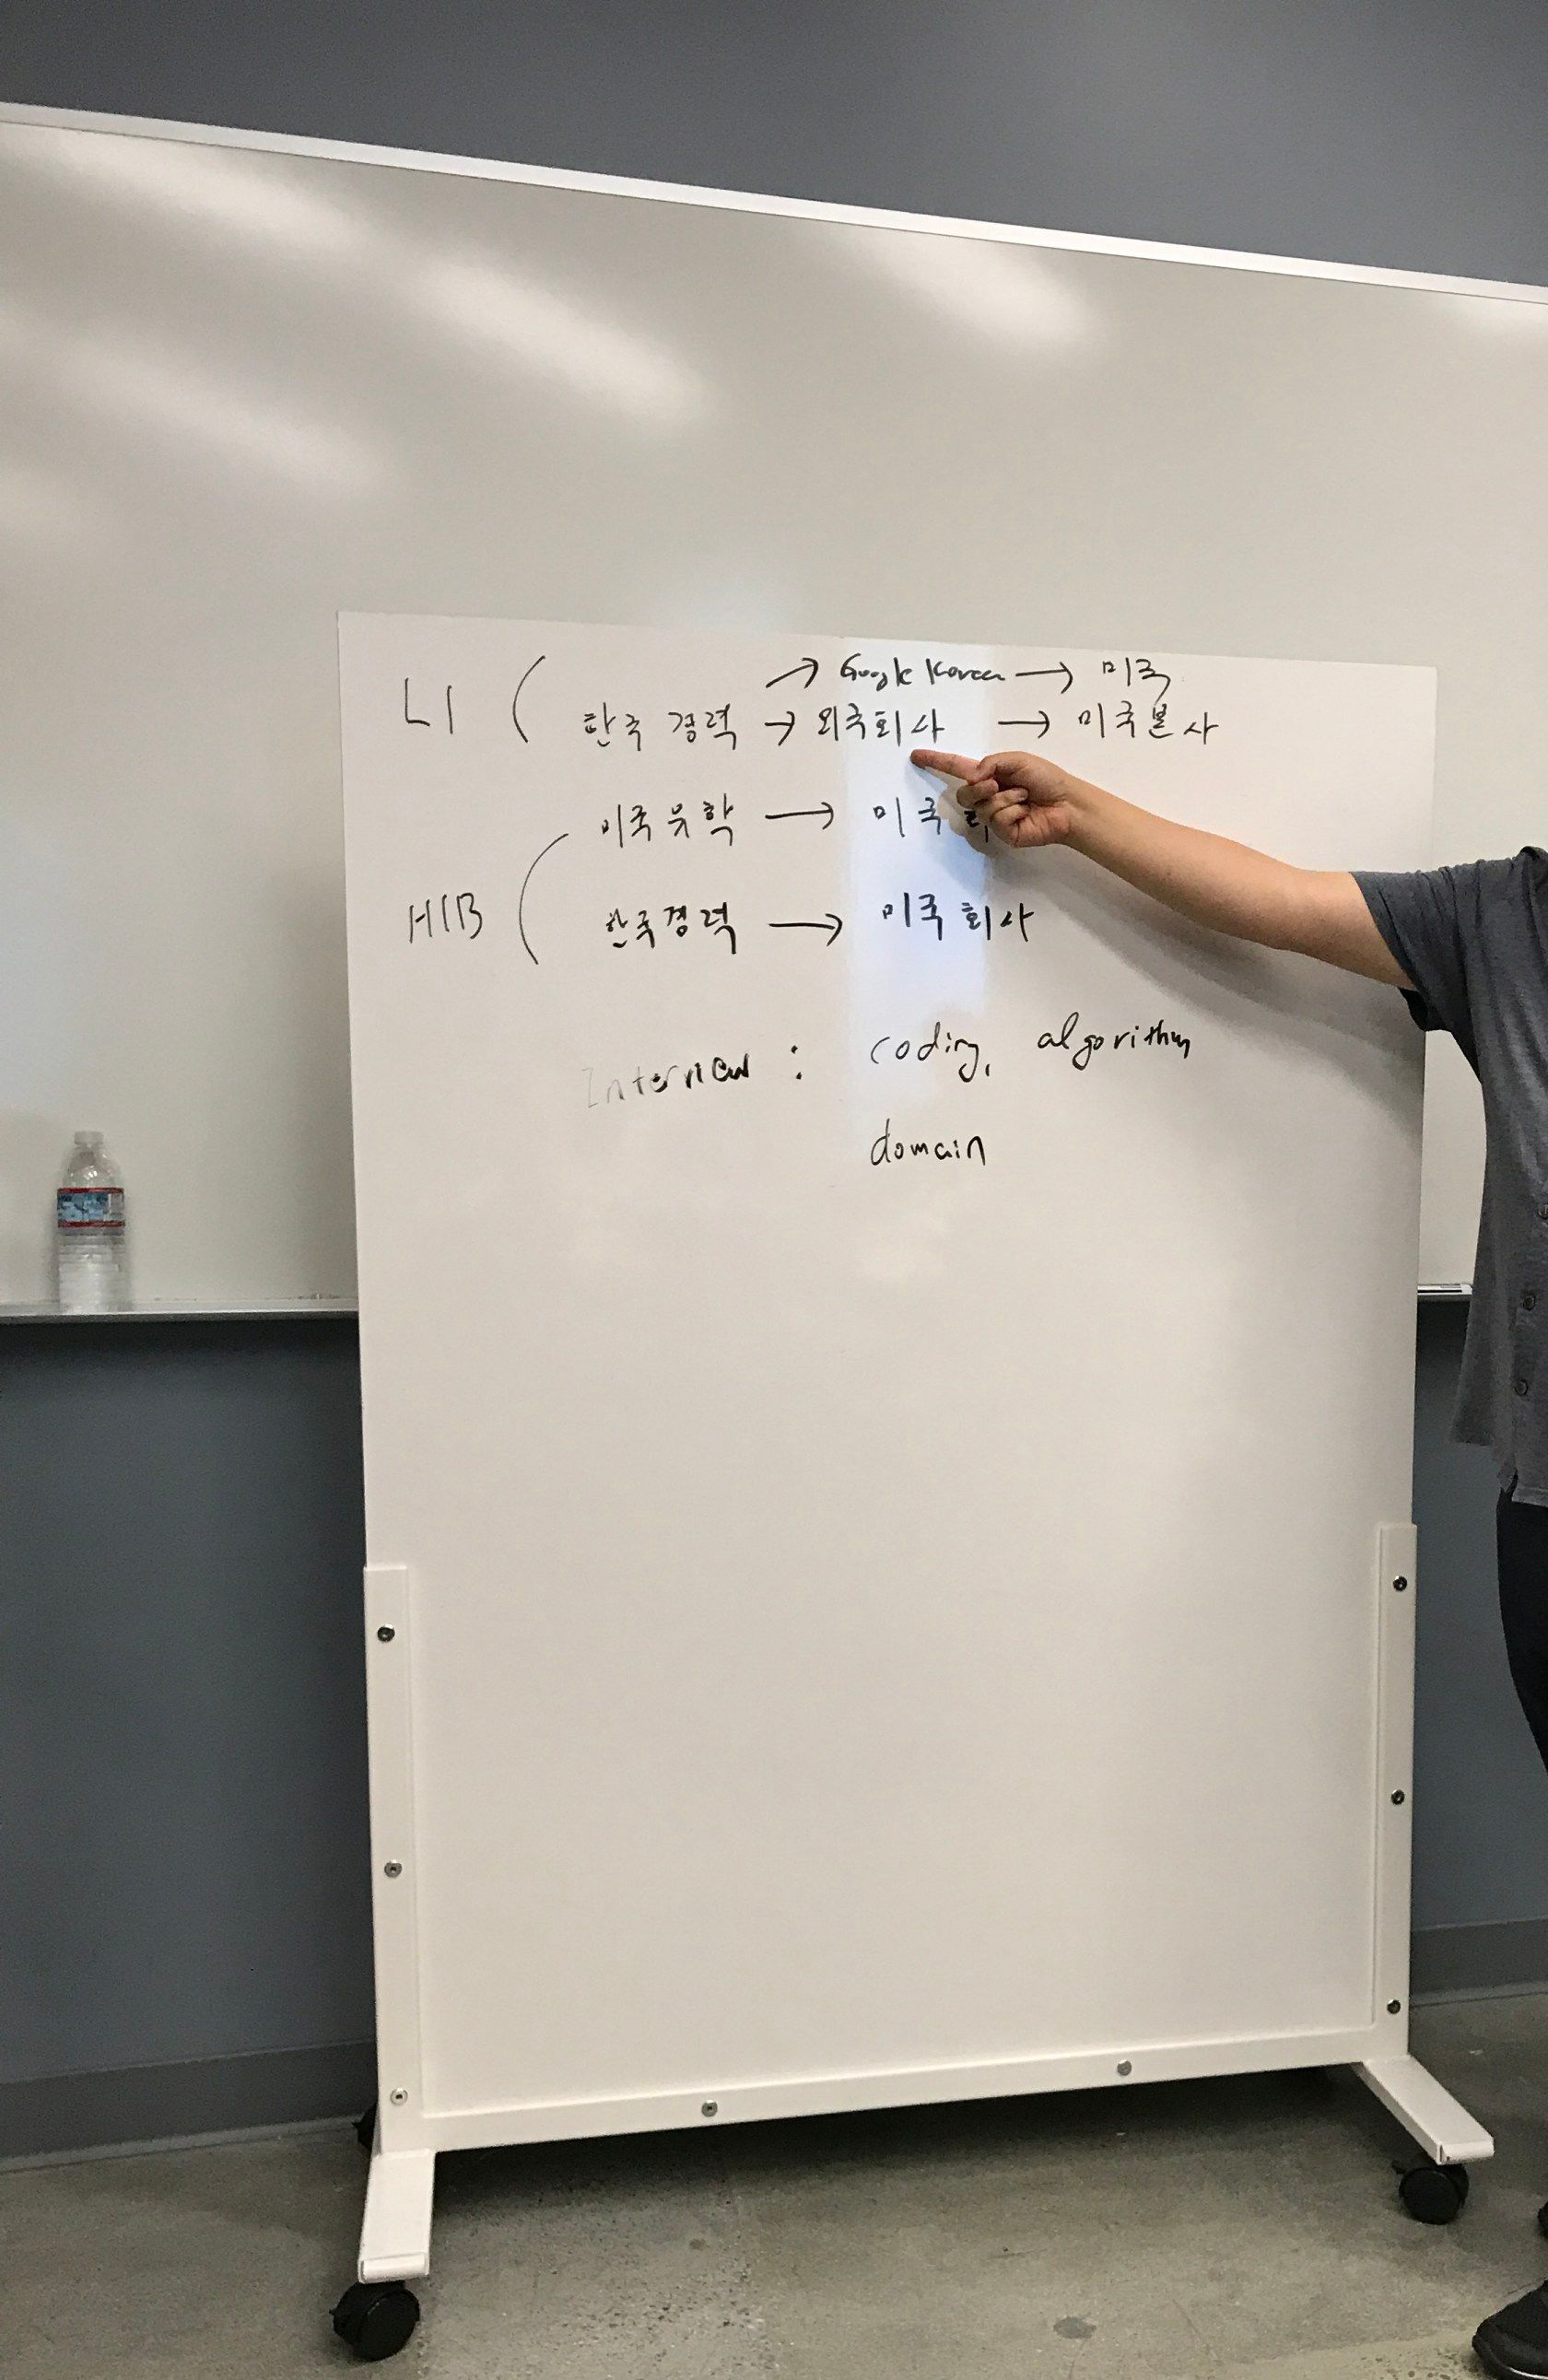 → Google Korea → 미국
L1 ( 한국 경력 → 외국회사 → 미국본사
미국유학 → 미국
H1B ( 한국경력 → 미국 회사
Interview : coding, algorithm
domain